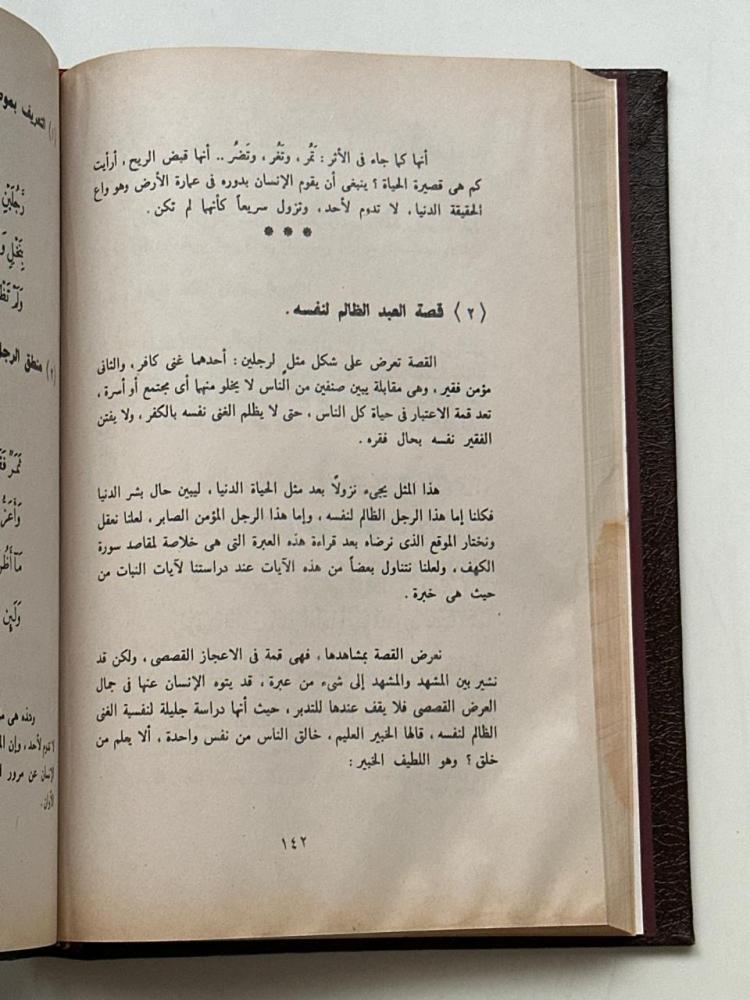 أنها كما جاء فى الأثر : تَمُر ، وتَغُر ، وتَضُر .. أنها قبض الريح ، أرأيت
كم هى قصيرة الحياة ؟ ينبغى أن يقوم الإنسان بدوره فى عمارة الأرض وهو واع
لحقيقة الدنيا ، لا تدوم لأحد ، وتزول سريعاً كأنها لم تكن .
* * *
(٢) قصة العبد الظالم لنفسه .
القصة تعرض على شكل مثل لرجلين : أحدهما غنى كافر ، والثانى
مؤمن فقير ، وهى مقابلة يبين صنفين من الناس لا يخلو منهما أى مجتمع أو أسرة ،
تعد قمة الاعتبار فى حياة كل الناس ، حتى لا يظلم الغنى نفسه بالكفر ، ولا يفتن
الفقير نفسه بحال فقره .
هذا المثل يجىء نزولاً بعد مثل الحياة الدنيا ، ليبين حال بشر الدنيا
فكلنا إما هذا الرجل الظالم لنفسه ، وإما هذا الرجل المؤمن الصابر ، لعلنا نعقل
ونختار الموقع الذى نرضاه بعد قراءة هذه العبرة التى هى خلاصة لمقاصد سورة
الكهف ، ولعلنا نتناول بعضاً من هذه الآيات عند دراستنا لآيات النبات من
حيث هى خبرة .
نعرض القصة بمشاهدها ، فهى قمة فى الاعجاز القصصى ، ولكن قد
نشير بين المشهد والمشهد إلى شىء من عبرة ، قد يتوه الإنسان عنها فى جمال
العرض القصصى فلا يقف عندها للتدبر ، حيث أنها دراسة جليلة لنفسية الغنى
الظالم لنفسه ، قالها الخبير العليم ، خالق الناس من نفس واحدة ، ألا يعلم من
خلق ؟ وهو اللطيف الخبير :
١٤٢
(١) التعريف
رَّجُلَيْنِ
بِنَخْلٍ
وَلَمْ
(٢) منطق الرجل
وَلَئِن
وهذه هى
لا تدوم لأحد ، وإن
الإنسان عن مرور